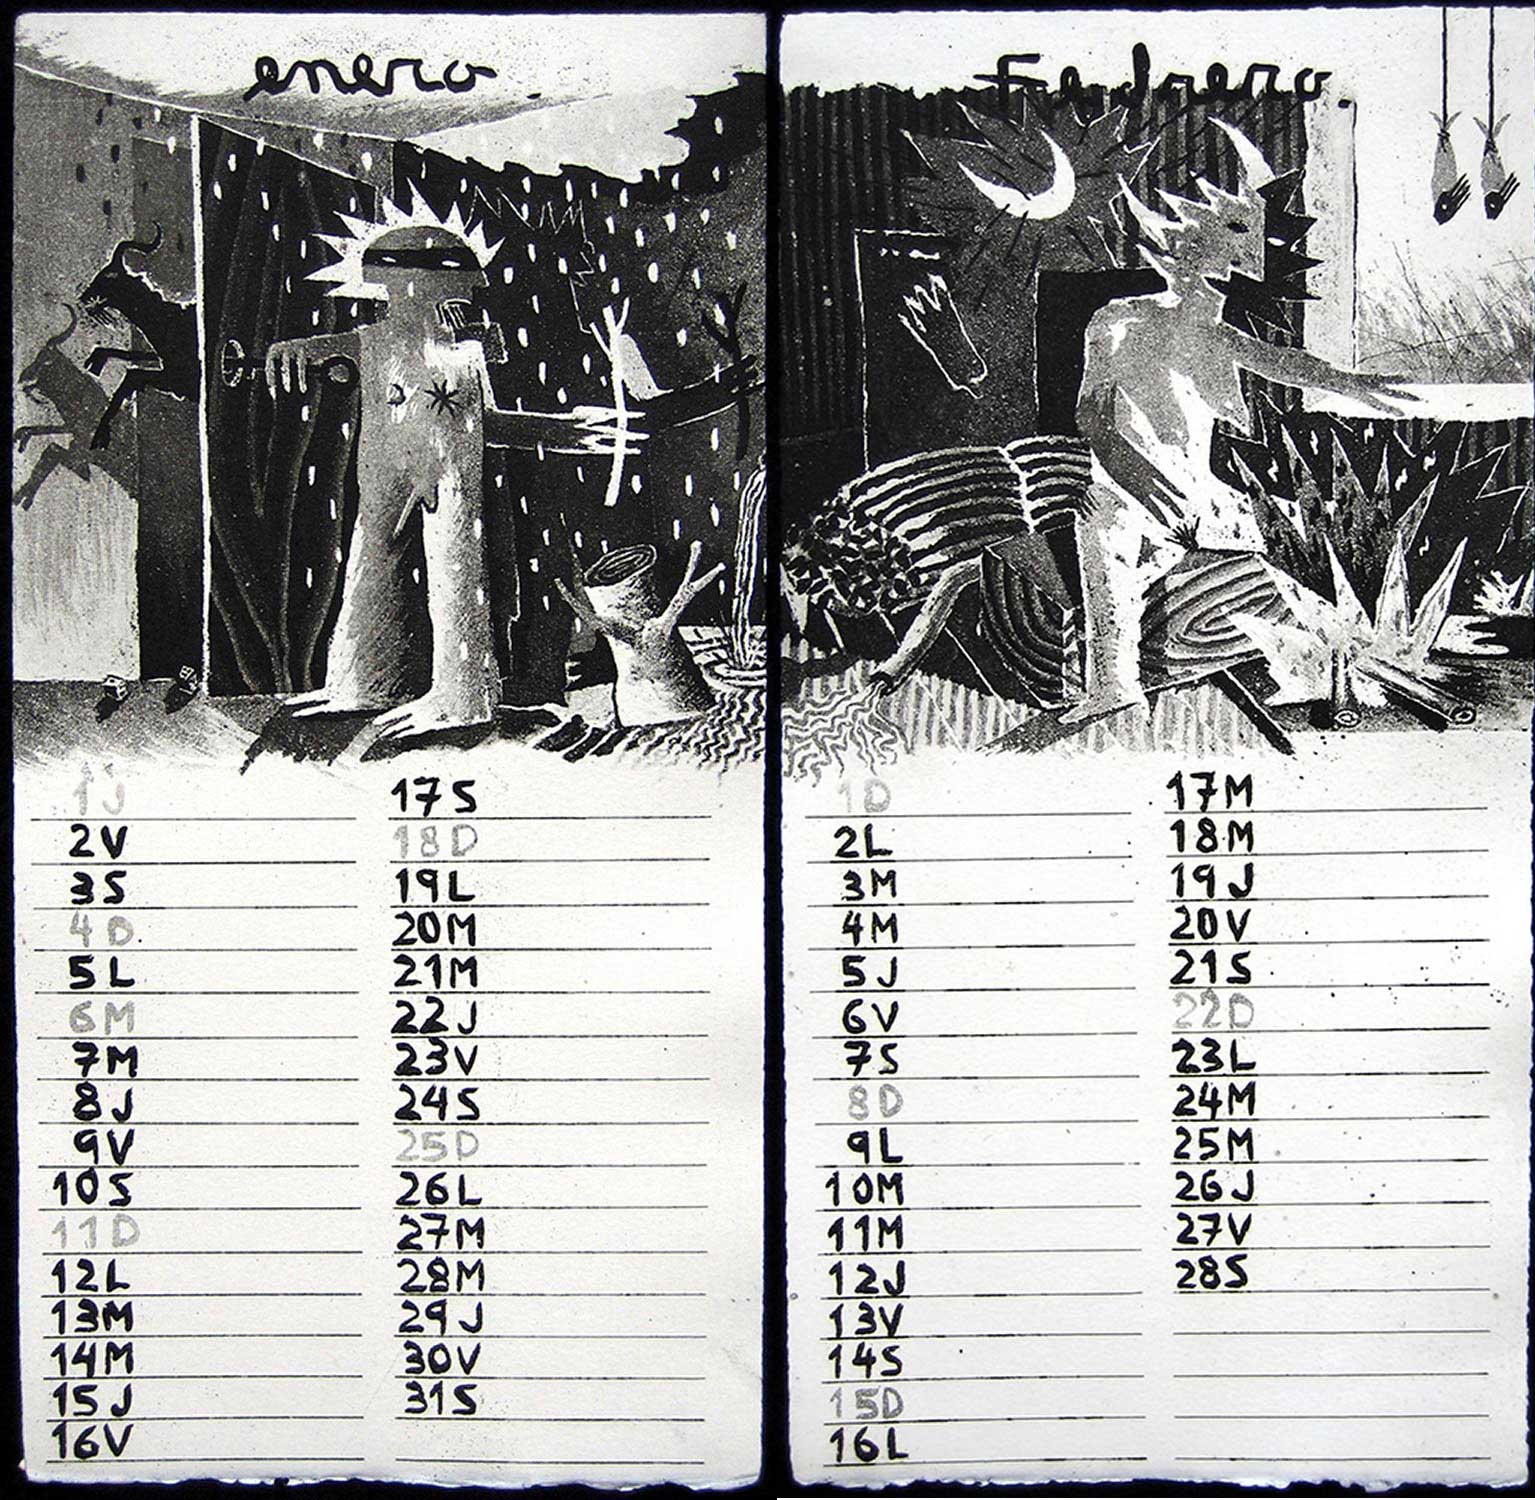 enero.
1J
2V
3S
4D
5L
6M
7M
8J
9V
10S
11D
12L
13M
14M
15J
16V
17S
18D
19L
20M
21M
22J
23V
24S
25D
26L
27M
28M
29J
30V
31S
Febrero.
1D
2L
3M
4M
5J
6V
7S
8D
9L
10M
11M
12J
13V
14S
15D
16L
17M
18M
19J
20V
21S
22D
23L
24M
25M
26J
27V
28S